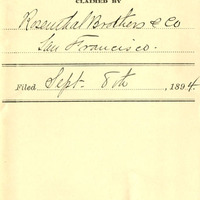 CLAIMED BY
Rosenthal Brothers & Co
San Francisco.
Filed Sept. 8th, 1894.